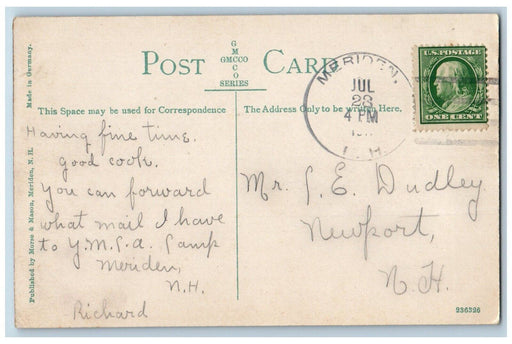 POST CARD
G
M
GMCCO
C
O
SERIES
MERIDEN,
JUL
28
4 PM
N. H.
U.S. POSTAGE
ONE CENT
Made in Germany.
Published by Morse & Mason, Meriden, N. H.
This Space may be used for Correspondence
The Address Only to be written Here.
Having fine time.
good cook.
You can forward
what mail I have
to Y.M.C.A. Camp
Meriden,
N.H.
Richard
Mr. C. E. Dudley
Newport,
N.H.
236326